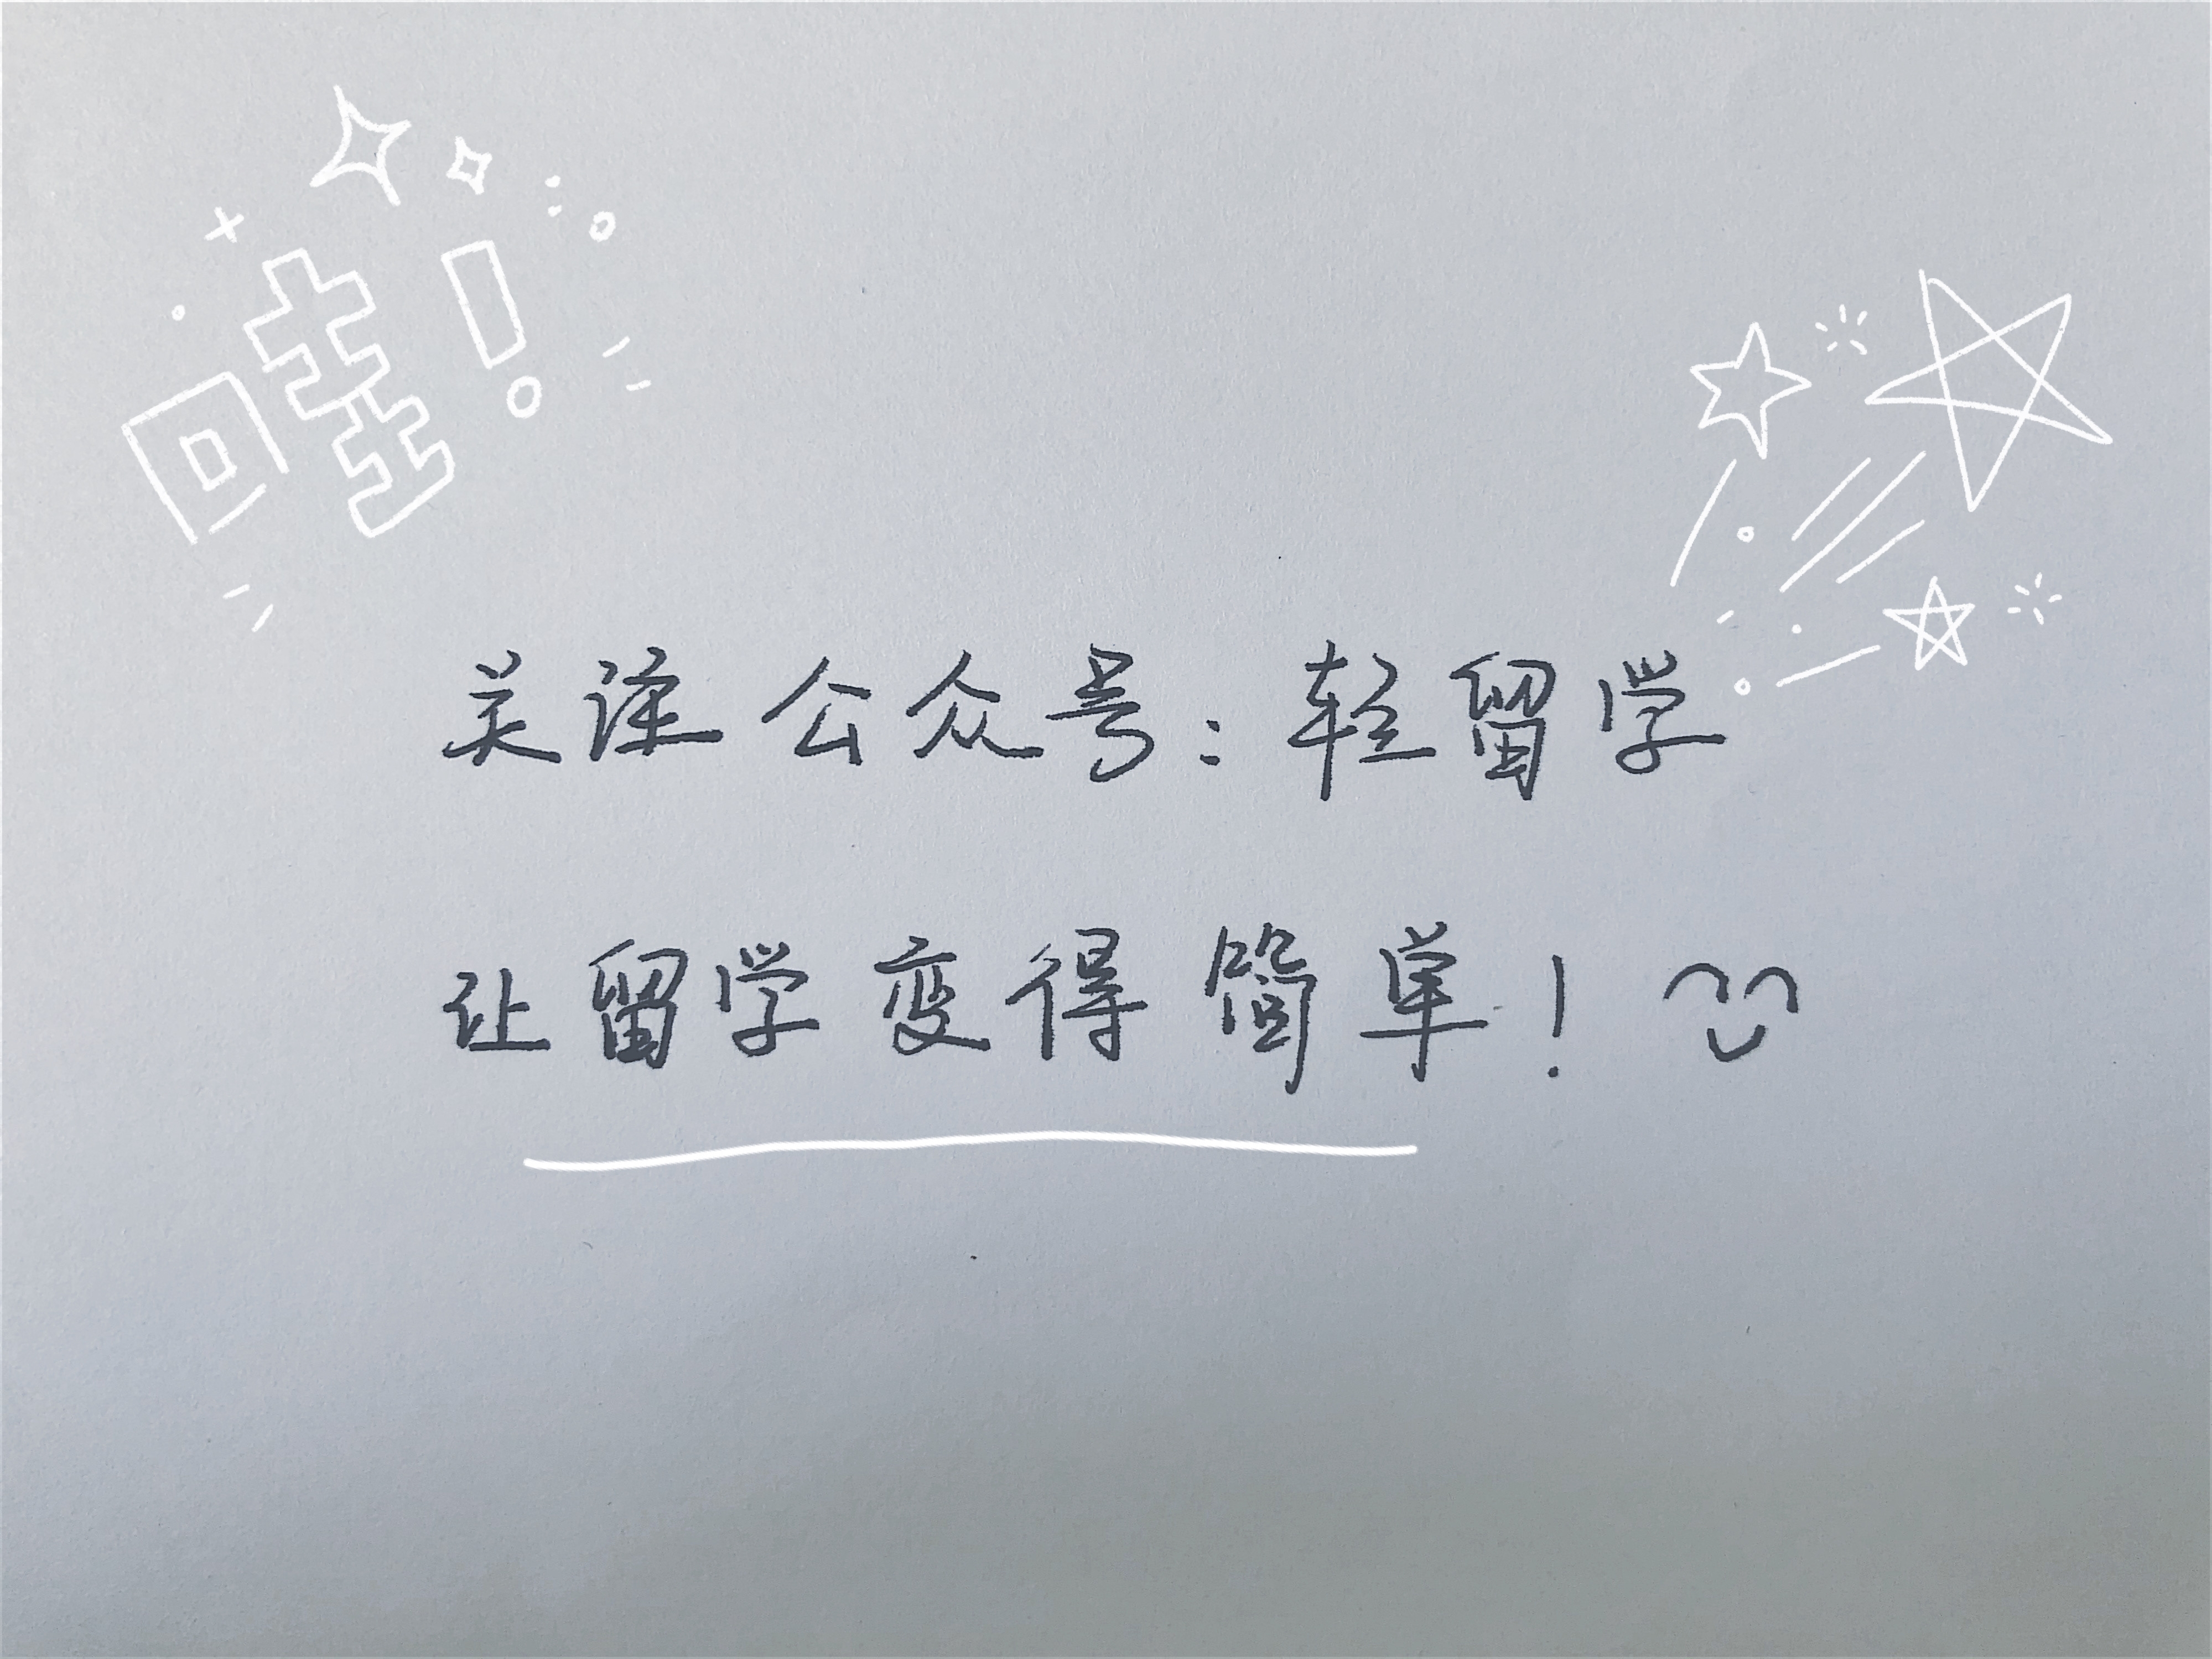 哇！
关注公众号：轻留学
让留学变得简单！